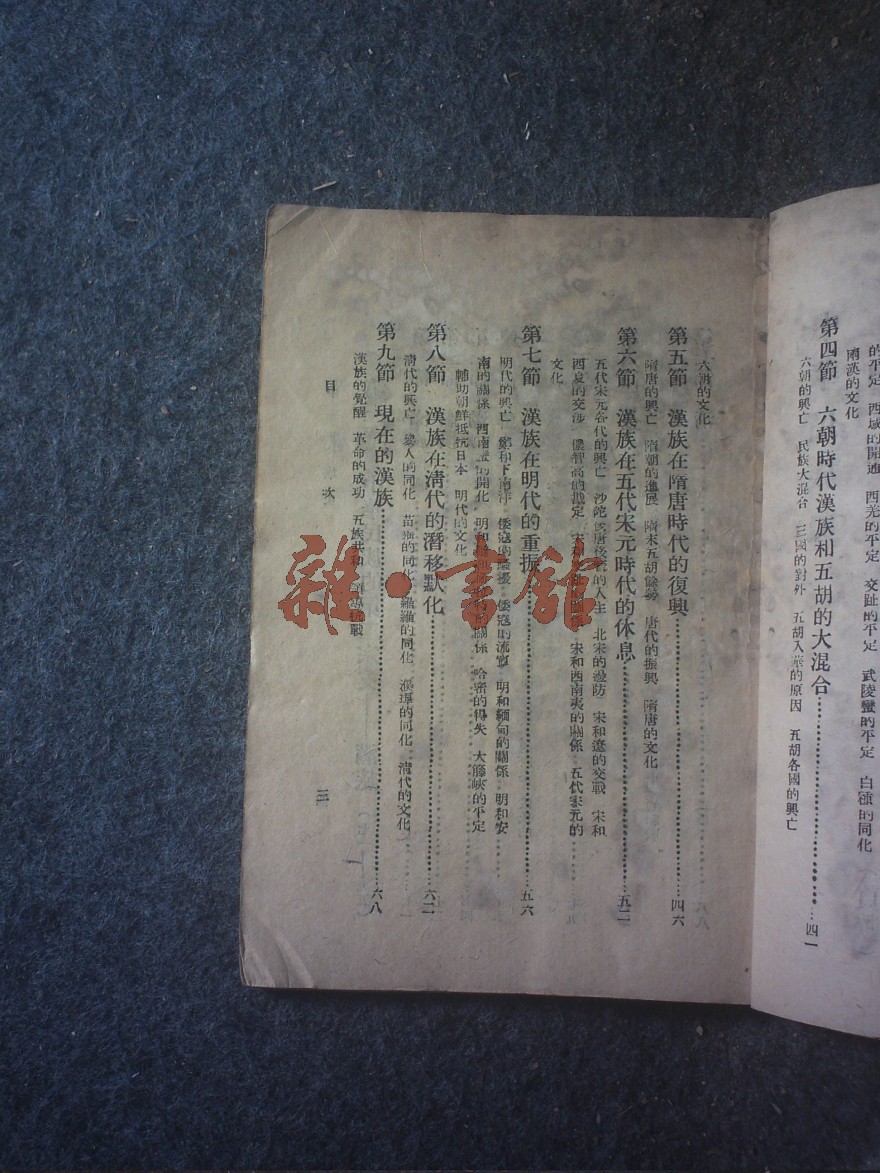 的平定　西域的開通　西羌的平定　交趾的平定　武陵蠻的平定　白種的同化
兩漢的文化
第四節　六朝時代漢族和五胡的大混合……四一
六朝的興亡　民族大混合　三國的對外　五胡入華的原因　五胡各國的興亡
六朝的文化
第五節　漢族在隋唐時代的復興……四六
隋唐的興亡　隋朝的進展　隋末五胡餘勢　唐代的振興　隋唐的文化
第六節　漢族在五代宋元時代的休息……五二
五代宋元各代的興亡　沙陀　唐後　的人主　北宋的邊防　宋和遼的交戰　宋和
西夏的交涉　儂智高的戡定　宋　關係　宋和西南夷的關係　五代宋元的
文化
第七節　漢族在明代的重振……五六
明代的興亡　鄭和下南洋　倭寇　擾　倭寇的流竄　明和緬甸的關係　明和安
南的關係　西南　的開化　明和　關係　哈密的得失　大藤峽的平定
輔助朝鮮抵抗日本　明代的文化
第八節　漢族在清代的潛移默化……六二
清代的興亡　滿人的同化　苗　的同化　羅羅的同化　的同化　清代的文化
第九節　現在的漢族……六八
漢族的覺醒　革命的成功　五族共和　抗戰
目　次
三
雜·書館